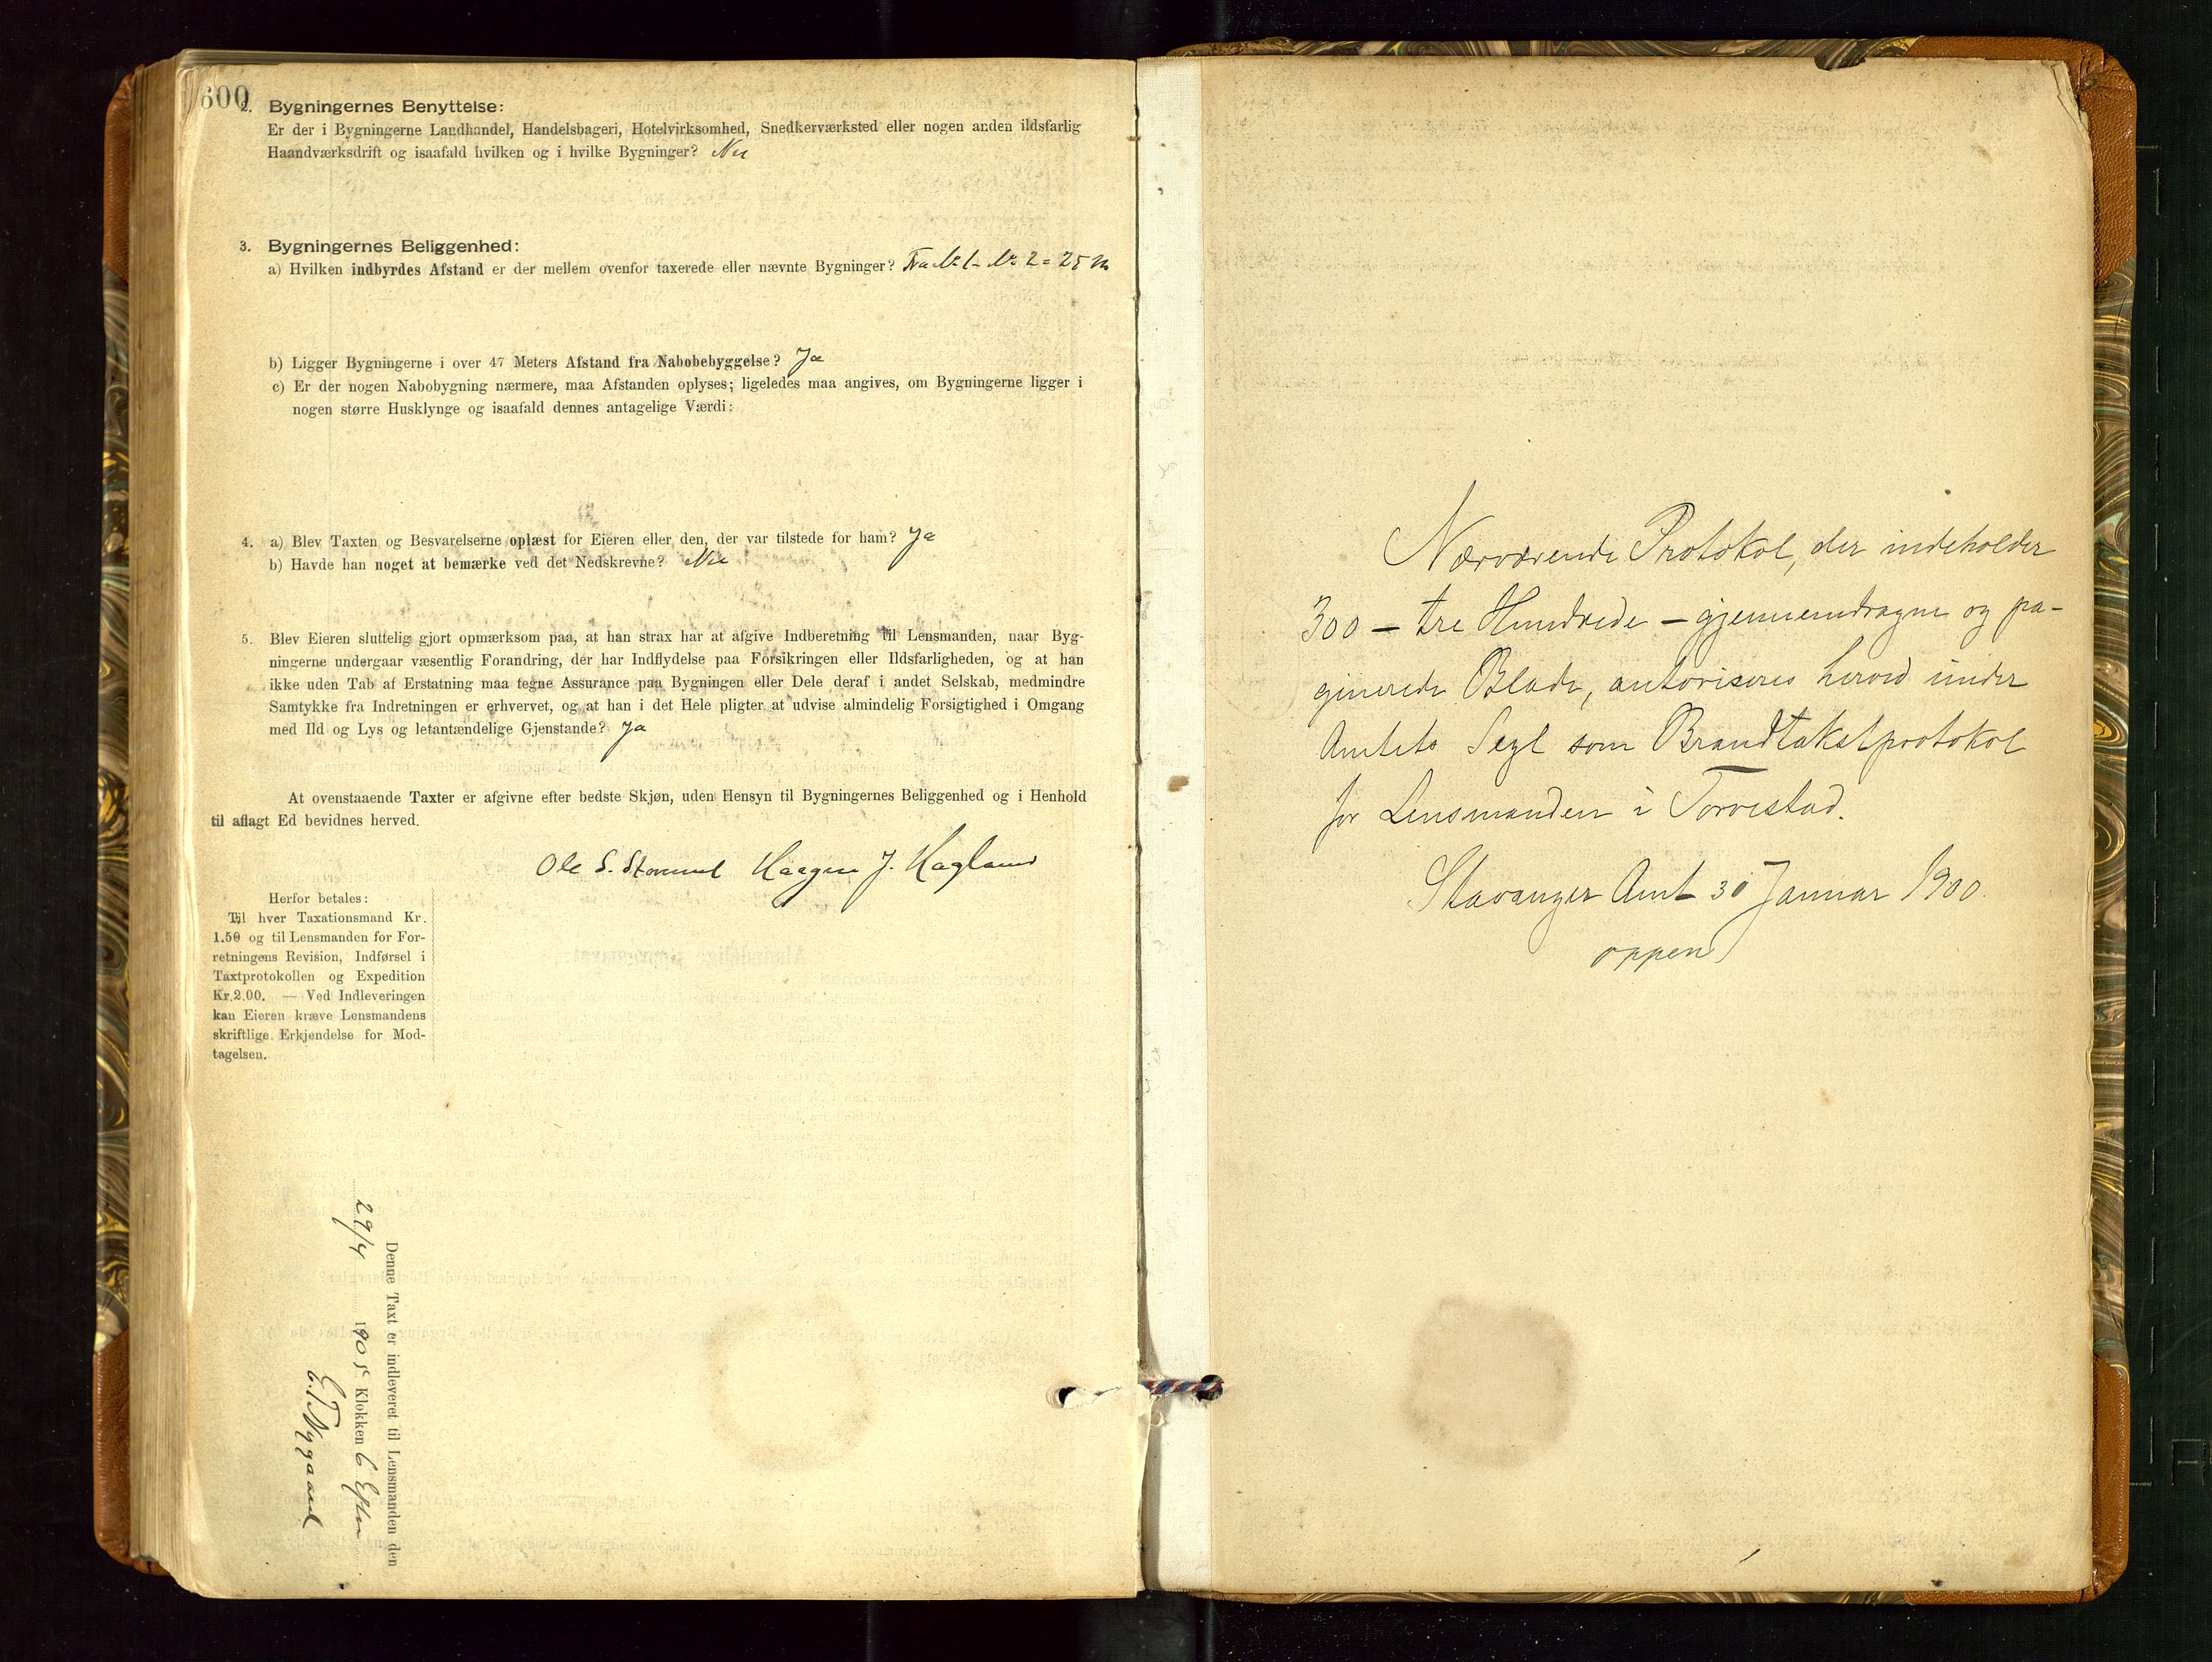 600
2. Bygningernes Benyttelse:
Er der i Bygningerne Landhandel, Handelsbageri, Hotelvirksomhed, Snedkerværksted eller nogen anden ildsfarlig
Haandværksdrift og isaafald hvilken og i hvilke Bygninger? Nei
3. Bygningernes Beliggenhed:
a) Hvilken indbyrdes Afstand er der mellem ovenfor taxerede eller nævnte Bygninger? Fra No 1 - No 2 = 25 m
b) Ligger Bygningerne i over 47 Meters Afstand fra Nabobebyggelse? Ja
c) Er der nogen Nabobygning nærmere, maa Afstanden oplyses; ligeledes maa angives, om Bygningerne ligger i
nogen større Husklynge og isaafald dennes antagelige Værdi:
4. a) Blev Taxten og Besvarelserne oplæst for Eieren eller den, der var tilstede for ham? Ja
b) Havde han noget at bemærke ved det Nedskrevne? Nei
5. Blev Eieren sluttelig gjort opmærksom paa, at han strax har at afgive Indberetning til Lensmanden, naar Byg-
ningerne undergaar væsentlig Forandring, der har Indflydelse paa Forsikringen eller Ildsfarligheden, og at han
ikke uden Tab af Erstatning maa tegne Assurance paa Bygningen eller Dele deraf i andet Selskab, medmindre
Samtykke fra Indretningen er erhvervet, og at han i det Hele pligter at udvise almindelig Forsigtighed i Omgang
med Ild og Lys og letantændelige Gjenstande? Ja
At ovenstaaende Taxter er afgivne efter bedste Skjøn, uden Hensyn til Bygningernes Beliggenhed og i Henhold
til aflagt Ed bevidnes herved.
Ole S. Haagen J. Hagland
Herfor betales:
Til hver Taxationsmand Kr.
1.50 og til Lensmanden for For-
retningens Revision, Indførsel i
Taxtprotokollen og Expedition
Kr.2.00. — Ved Indleveringen
kan Eieren kræve Lensmandens
skriftlige Erkjendelse for Mod-
tagelsen.
Denne Taxt er indleveret til Lensmanden den
29/4 1905 Klokken 6 Efterm
E. T. Nygaard
Nærværende Protokol, der indeholder
300 - tre Hundrede - gjennemdragne og pa-
ginerede Blade, autoriseres herved under
Amtets Segl som Brandtakstprotokol
for Lensmanden i Torvestad.
Stavanger Amt 30 Januar 1900.
oppen